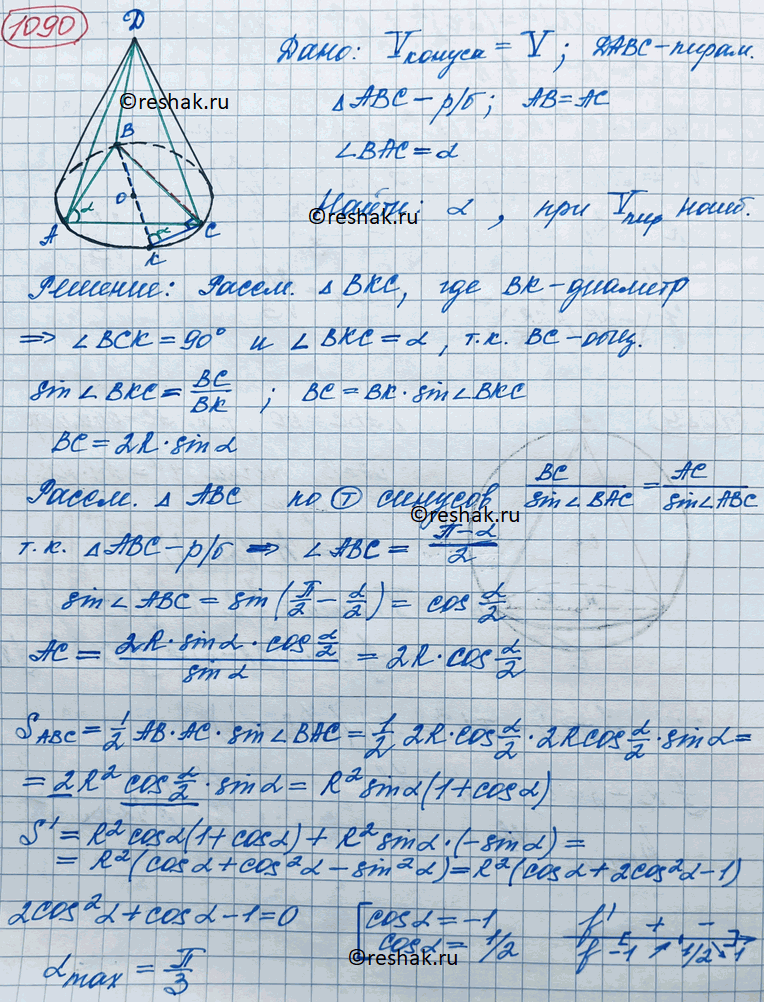 1090
D
©reshak.ru
B
α
O
A
α
C
K
Дано: Vконуса = V; DABC-пирам.
△ABC - р/б; AB=AC
∠BAC = α
Найти: α, при Vпир наиб.
©reshak.ru
Решение: Рассм. △BKC, где BK-диаметр
=> ∠BCK = 90° и ∠BKC = α, т.к. BC-общ.
sin∠BKC = BC/BK ; BC = BK·sin∠BKC
BC = 2R·sinα
Рассм. △ABC по Ⓣ синусов BC/sin∠BAC = AC/sin∠ABC
©reshak.ru
т.к. △ABC - р/б => ∠ABC = (π-α)/2
sin∠ABC = sin(π/2 - α/2) = cos α/2
AC = (2R·sinα·cos α/2)/sinα = 2R·cos α/2
S_ABC = 1/2 AB·AC·sin∠BAC = 1/2 2R·cos α/2·2Rcos α/2·sinα =
= 2R² cos α/2·sinα = R² sinα(1+cosα)
S' = R² cosα(1+cosα) + R² sinα·(-sinα) =
= R²(cosα + cos²α - sin²α) = R²(cosα + 2cos²α - 1)
2cos²α + cosα - 1 = 0 [cosα = -1 f' + -
cosα = 1/2 f -1 ↗ 1/2 ↘ 1
©reshak.ru
αmax = π/3